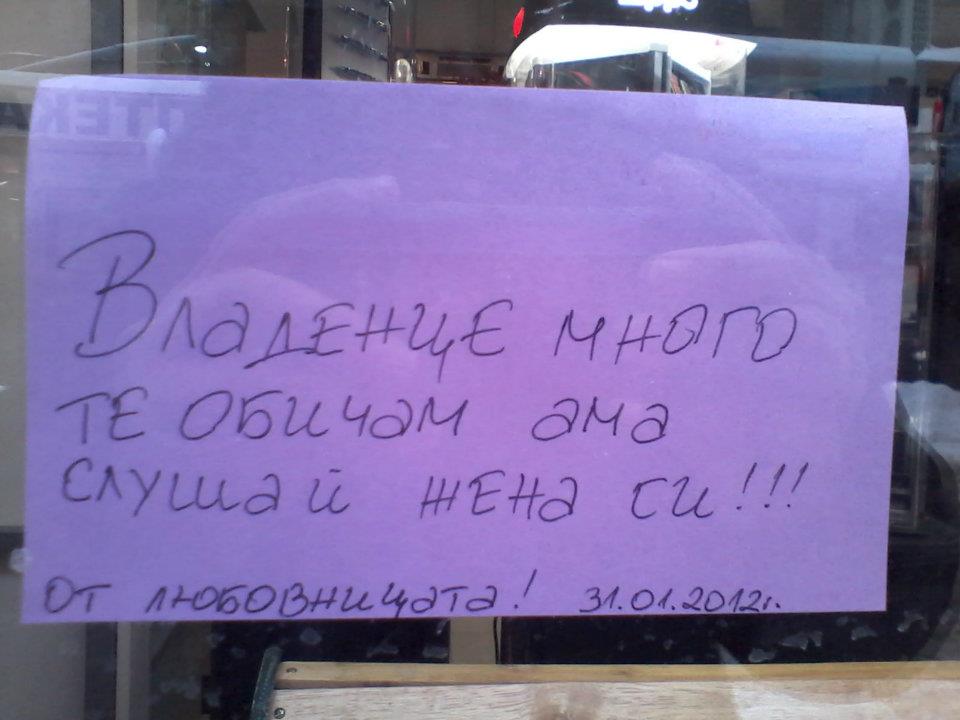 Владенце много
те обичам ама
слушай жена си!!!
от любовницата! 31.01.2012г.